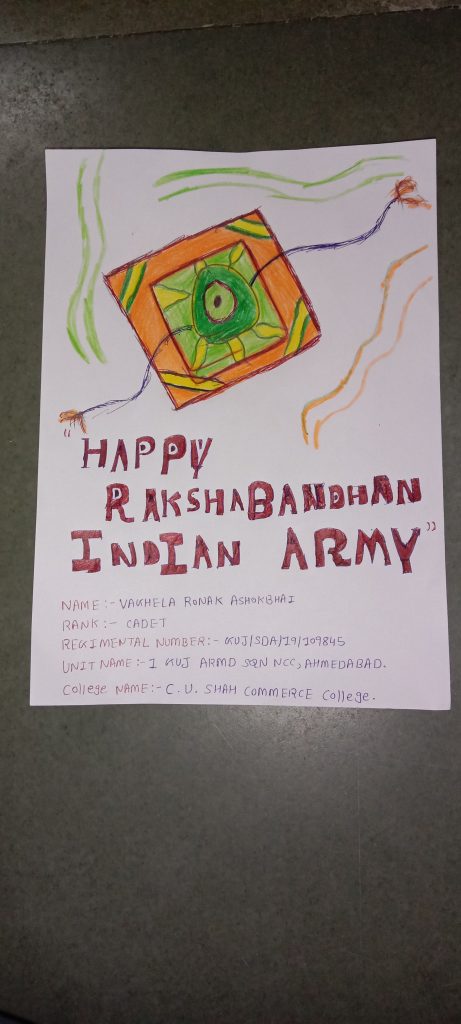 "HAPPY
RAKSHABANDHAN
INDIAN ARMY"
NAME:- VAGHELA RONAK ASHOKBHAI
RANK:- CADET
REGIMENTAL NUMBER:- GUJ/SDA/19/109845
UNIT NAME:- 1 GUJ ARMD SQN NCC, AHMEDABAD.
College NAME:- C. U. SHAH COMMERCE College.